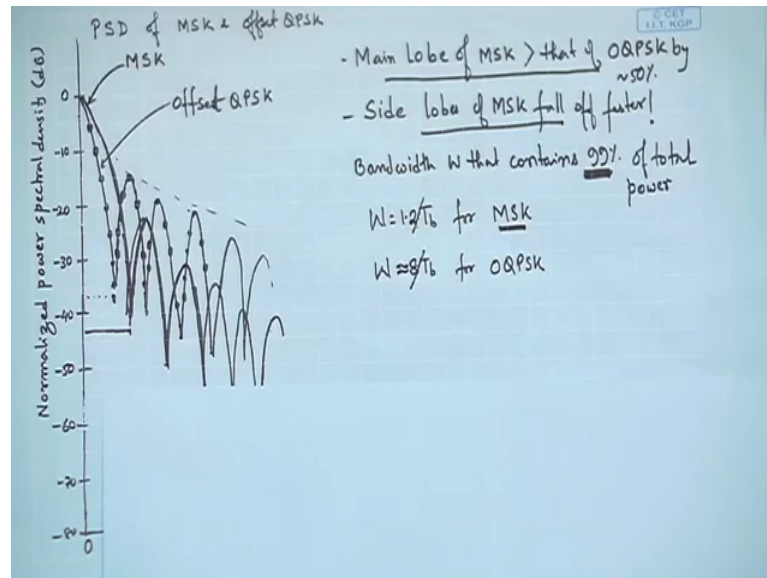 PSD of MSK & offset QPSK
© CET
I.I.T. KGP
MSK
offset QPSK
Normalized power spectral density (dB)
0
-10
-20
-30
-40
-50
-60
-70
-80
0
- Main Lobe of MSK > that of OQPSK by
~50%.
- Side lobes of MSK fall off faster!
Bandwidth W that contains 99% of total
power
W = 1.2/Tb for MSK
W ≈ 8/Tb for OQPSK